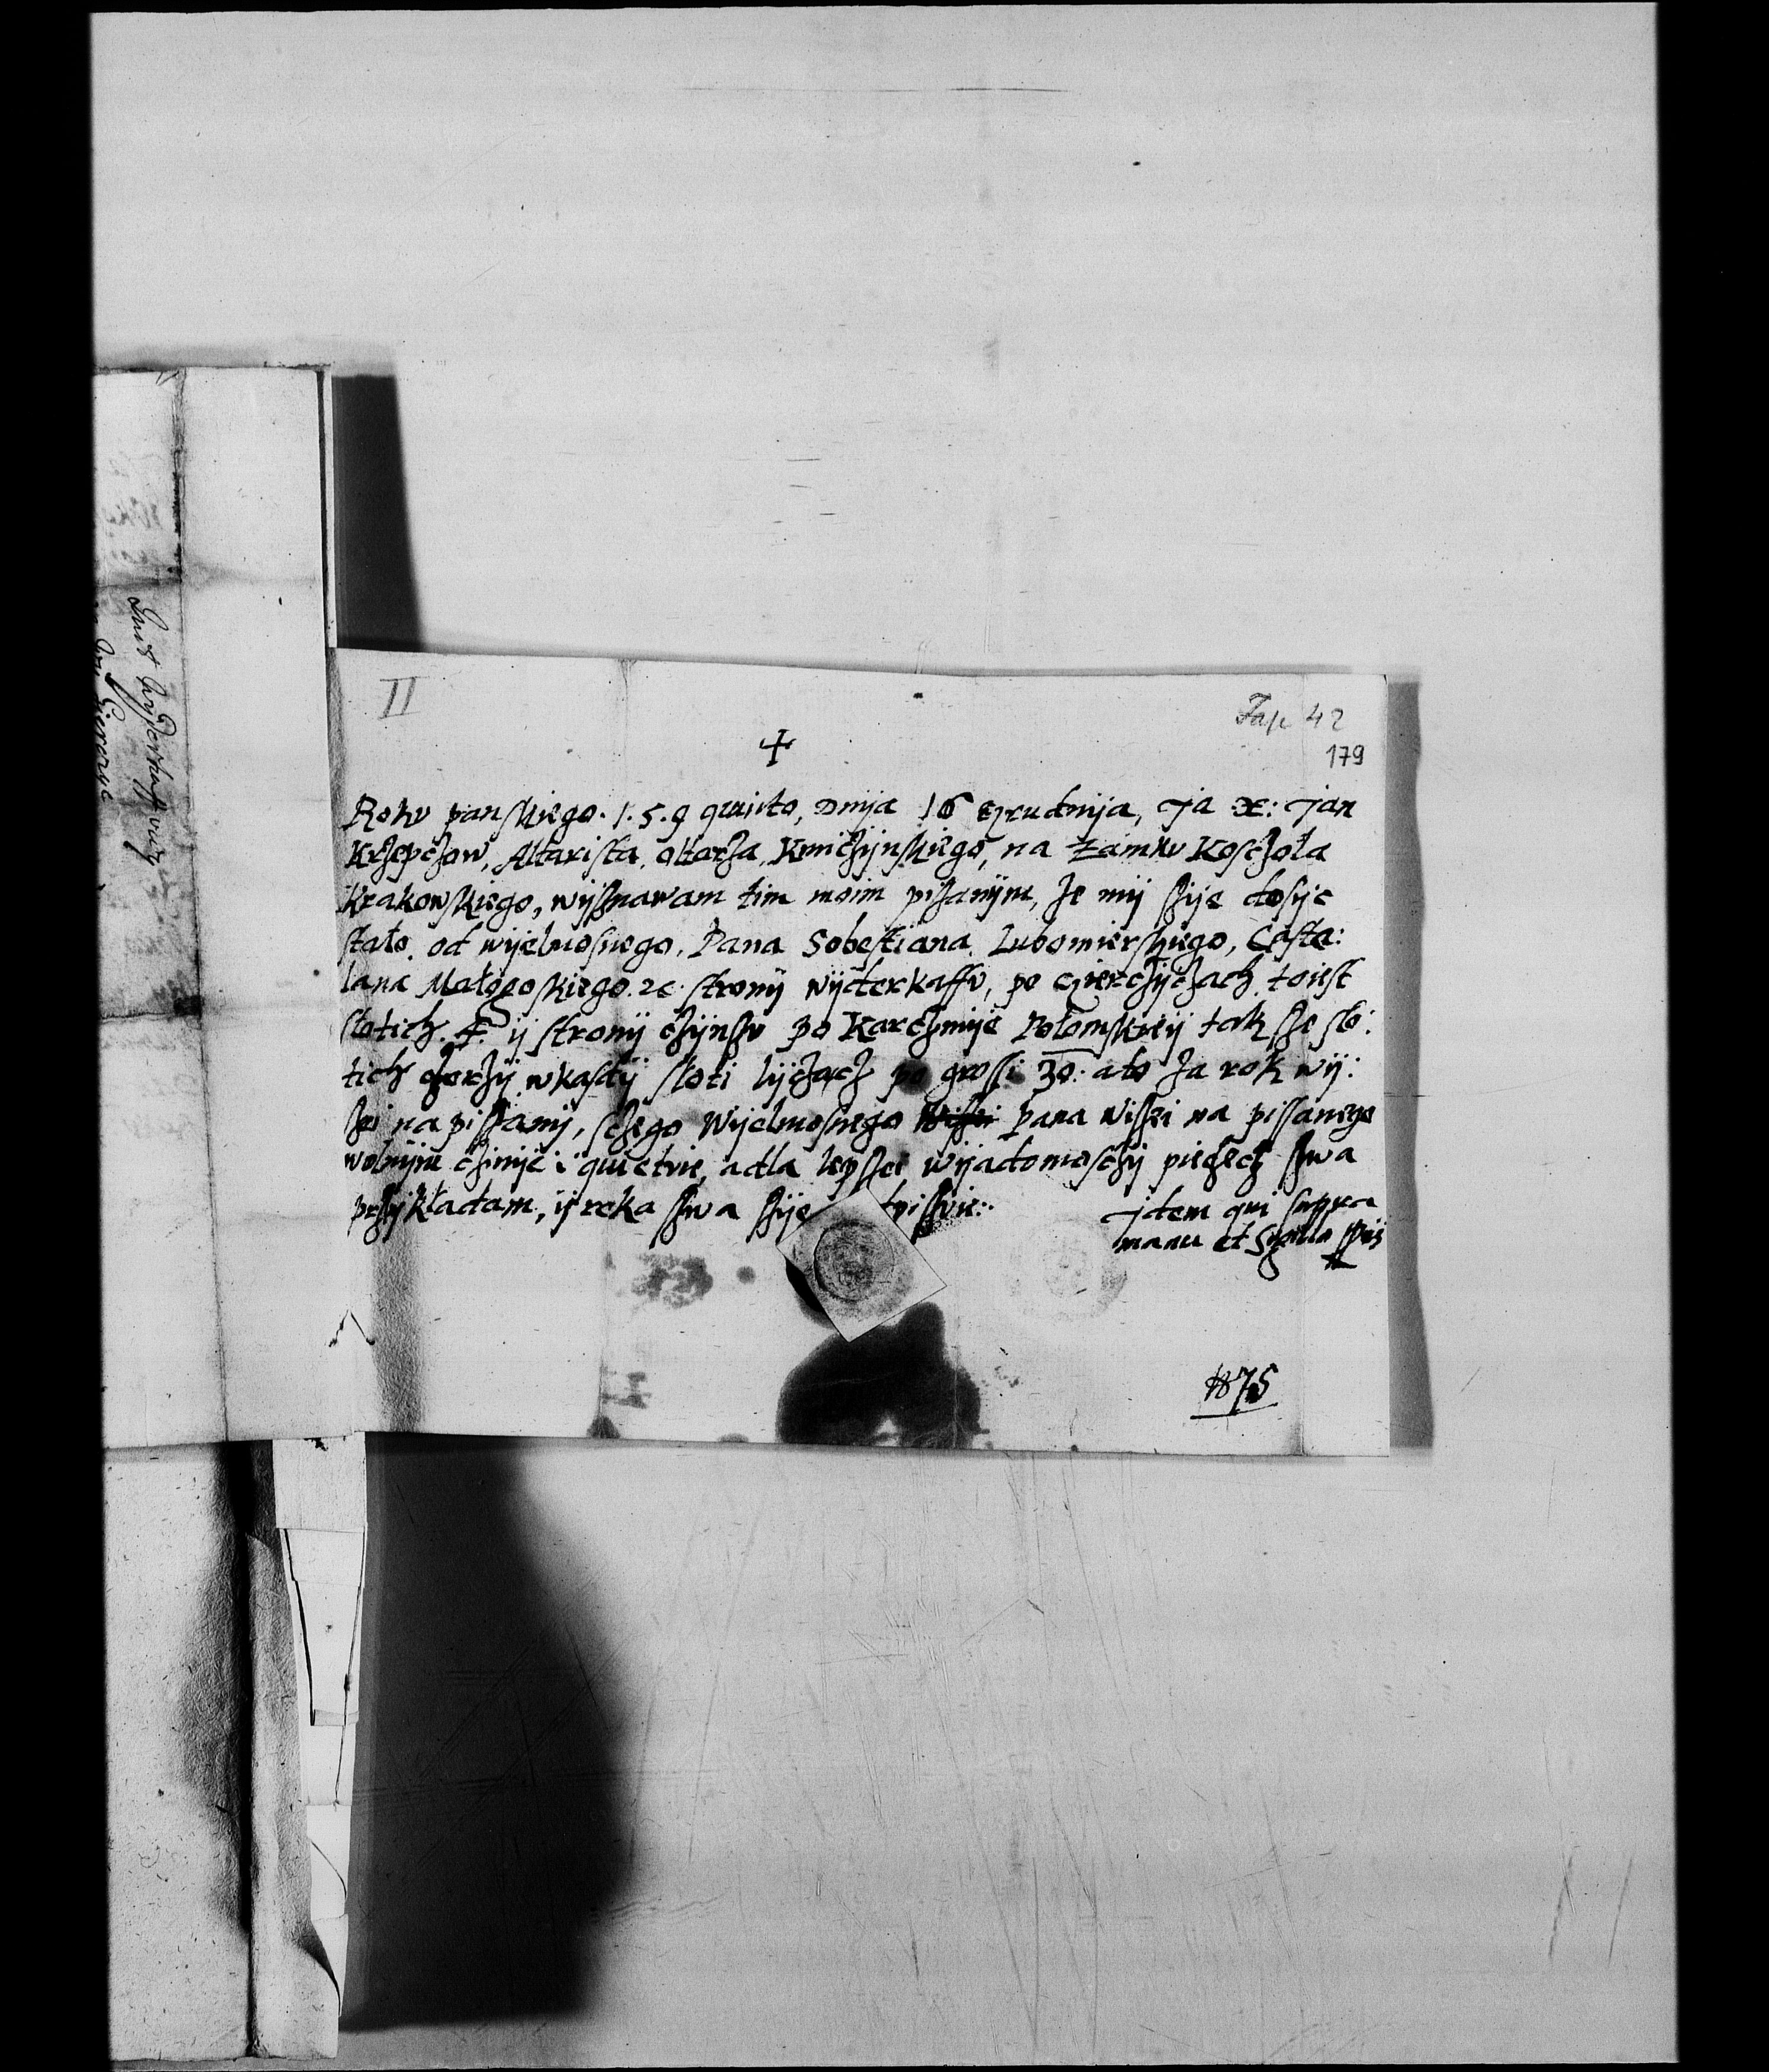 II
Fasc 42
179
+
Roku panskiego. 1. 5. 9 quinto, Dnija 16 Grudnija, Ja X: Jan
Krzepczow, Altarista, oltarza, Kmiczijnskiego, na Zamku Kosczola
Krakowskiego, wijsnawam tim moim pisanijm, ze mij szije dosijc
stało, od wijelmosnego, Pana Sobestiana, Lubomierskiego, Caste:
lana Małogoskiego. ze stronij wijderkaffu, po Gierczijczach, toiest
slotich. 4. ij stronij czijnszu po Karczmije Polomskieij takze slo:
tich czterzij wkasdij sloti lijczacz po grossi 30: a to za rok wij:
szei na pissanij, sczego Wijelmosnego Pana Wiszei na pissanego
wolnijm czinije i quietuie, a dla lepszei wijadomosczij pieczecz swa
przijkładam, ij reka swa szije
Jdem qui suppra
manu et
1875
Quit
Gierczyc